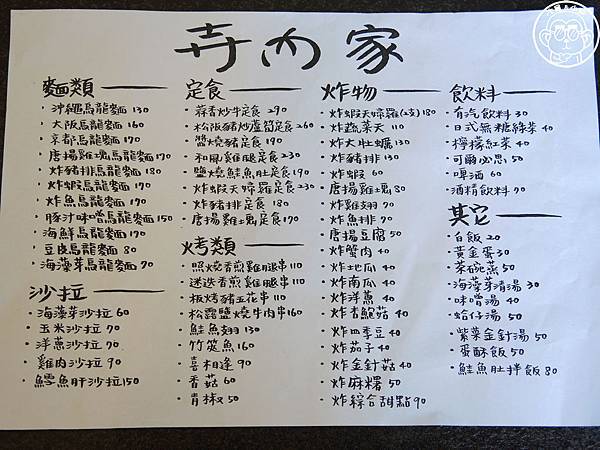 寺內家
麵類
・沖繩烏龍麵 130
・大阪烏龍麵 160
・京都烏龍麵 170
・唐揚雞塊烏龍麵 170
・炸豬排烏龍麵 180
・炸蝦烏龍麵 190
・炸魚烏龍麵 190
・豚汁味噌烏龍麵 150
・海鮮烏龍麵 170
・豆皮烏龍麵 80
・海藻芽烏龍麵 70
沙拉
・海藻芽沙拉 60
・玉米沙拉 90
・洋蔥沙拉 90
・雞肉沙拉 90
・鱈魚肝沙拉 150
定食
・蒜香炒牛定食 290
・松阪豬炒蘆筍定食 260
・醬燒豬定食 190
・和風雞腿定食 230
・鹽燒鮭魚肚定食 190
・炸蝦天婦羅定食 230
・炸豬排定食 180
・唐揚雞塊定食 170
烤類
・照燒香煎雞腿串 110
・迷迭香煎雞腿串 110
・板烤豬五花串 110
・松露鹽燒牛肉串 160
・鮭魚翅 130
・竹筴魚 160
・喜相逢 90
・香菇 60
・青椒 50
炸物
・炸蝦天婦羅(2支) 180
・炸蔬菜天 110
・炸大牡蠣 130
・炸豬排 130
・炸蝦 60
・唐揚雞塊 80
・炸雞翅 70
・炸魚排 70
・唐揚豆腐 50
・炸蟹肉 40
・炸地瓜 40
・炸南瓜 40
・炸洋蔥 40
・炸杏鮑菇 40
・炸四季豆 40
・炸茄子 40
・炸金針菇 40
・炸麻糬 50
・炸綜合甜點 90
飲料
・有汽飲料 30
・日式無糖綠茶 40
・檸檬紅茶 40
・可爾必思 50
・啤酒 60
・酒精飲料 70
其它
・白飯 20
・黃金蛋 30
・茶碗蒸 50
・海藻芽清湯 30
・味噌湯 40
・蛤仔湯 50
・紫菜金針湯 50
・蛋酥飯 50
・鮭魚肚拌飯 80